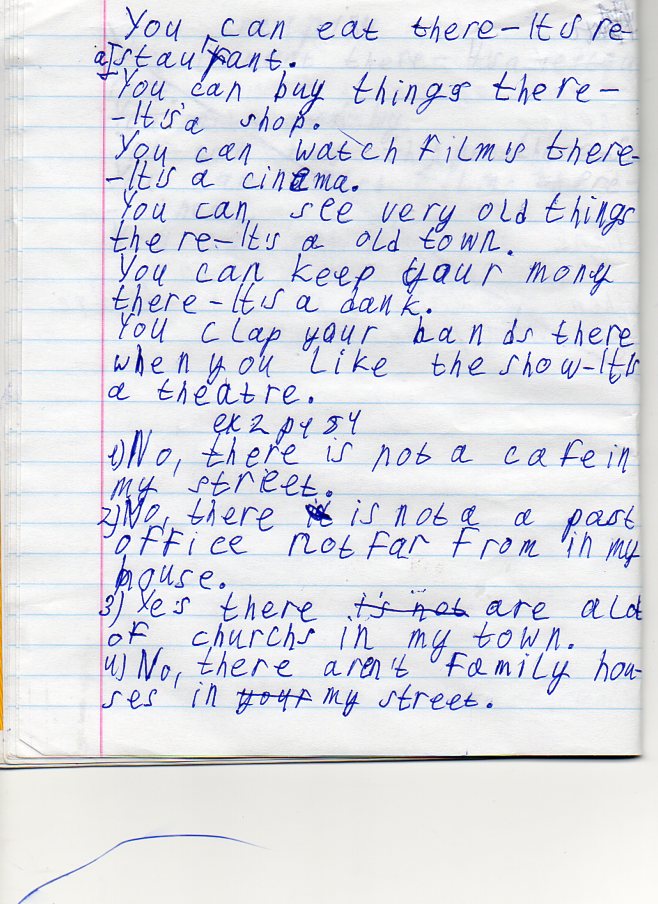 You can eat there-It's re-
a]staurant.
You can buy things there-
-It's a shop.
You can watch films there-
-It's a cinema.
You can see very old things
there-It's a old town.
You can keep your mony
there-It's a bank.
You clap your hands there
when you like the show-It's
a theatre.
ex 2 pg 84
1) No, there is not a cafe in
my street.
2) No, there is not a a post
office not far from in my
house.
3) Yes there is not are old
of churchs in my town.
4) No, there aren't family hou-
ses in your my street.